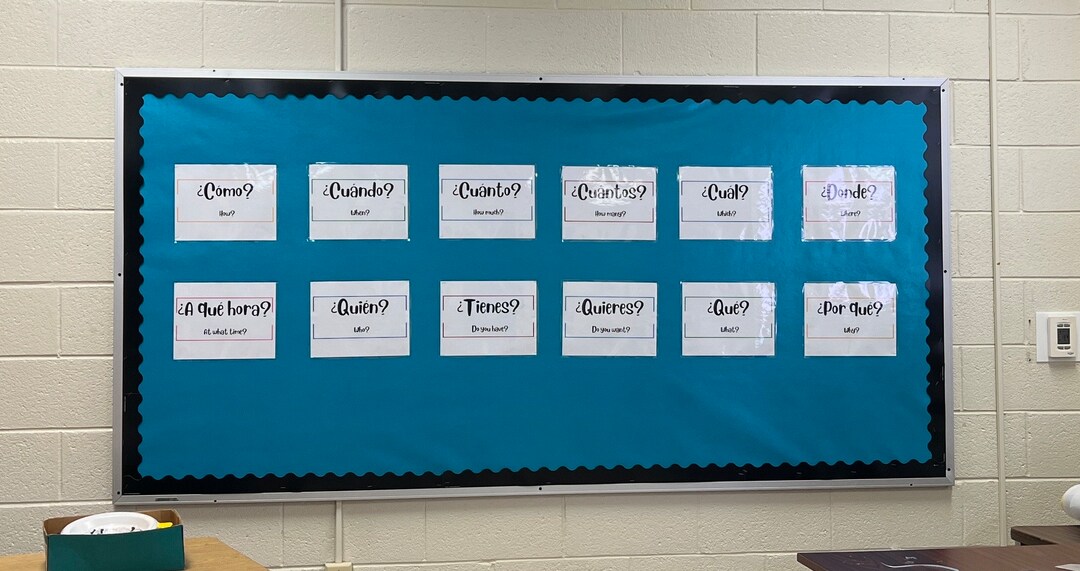 ¿Cómo?
How?
¿Cuándo?
When?
¿Cuánto?
How much?
¿Cuántos?
How many?
¿Cuál?
Which?
¿Dónde?
Where?
¿A qué hora?
At what time?
¿Quién?
Who?
¿Tienes?
Do you have?
¿Quieres?
Do you want?
¿Qué?
What?
¿Por qué?
Why?